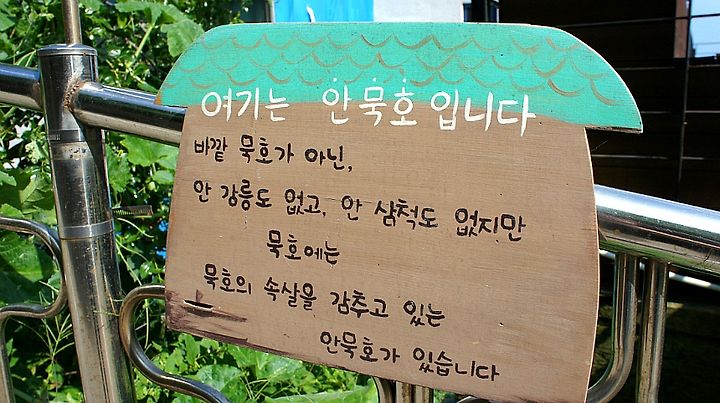 여기는 안묵호입니다
바깥 묵호가 아닌,
안 강릉도 없고, 안 삼척도 없지만
묵호에는
묵호의 속살을 감추고 있는
안묵호가 있습니다